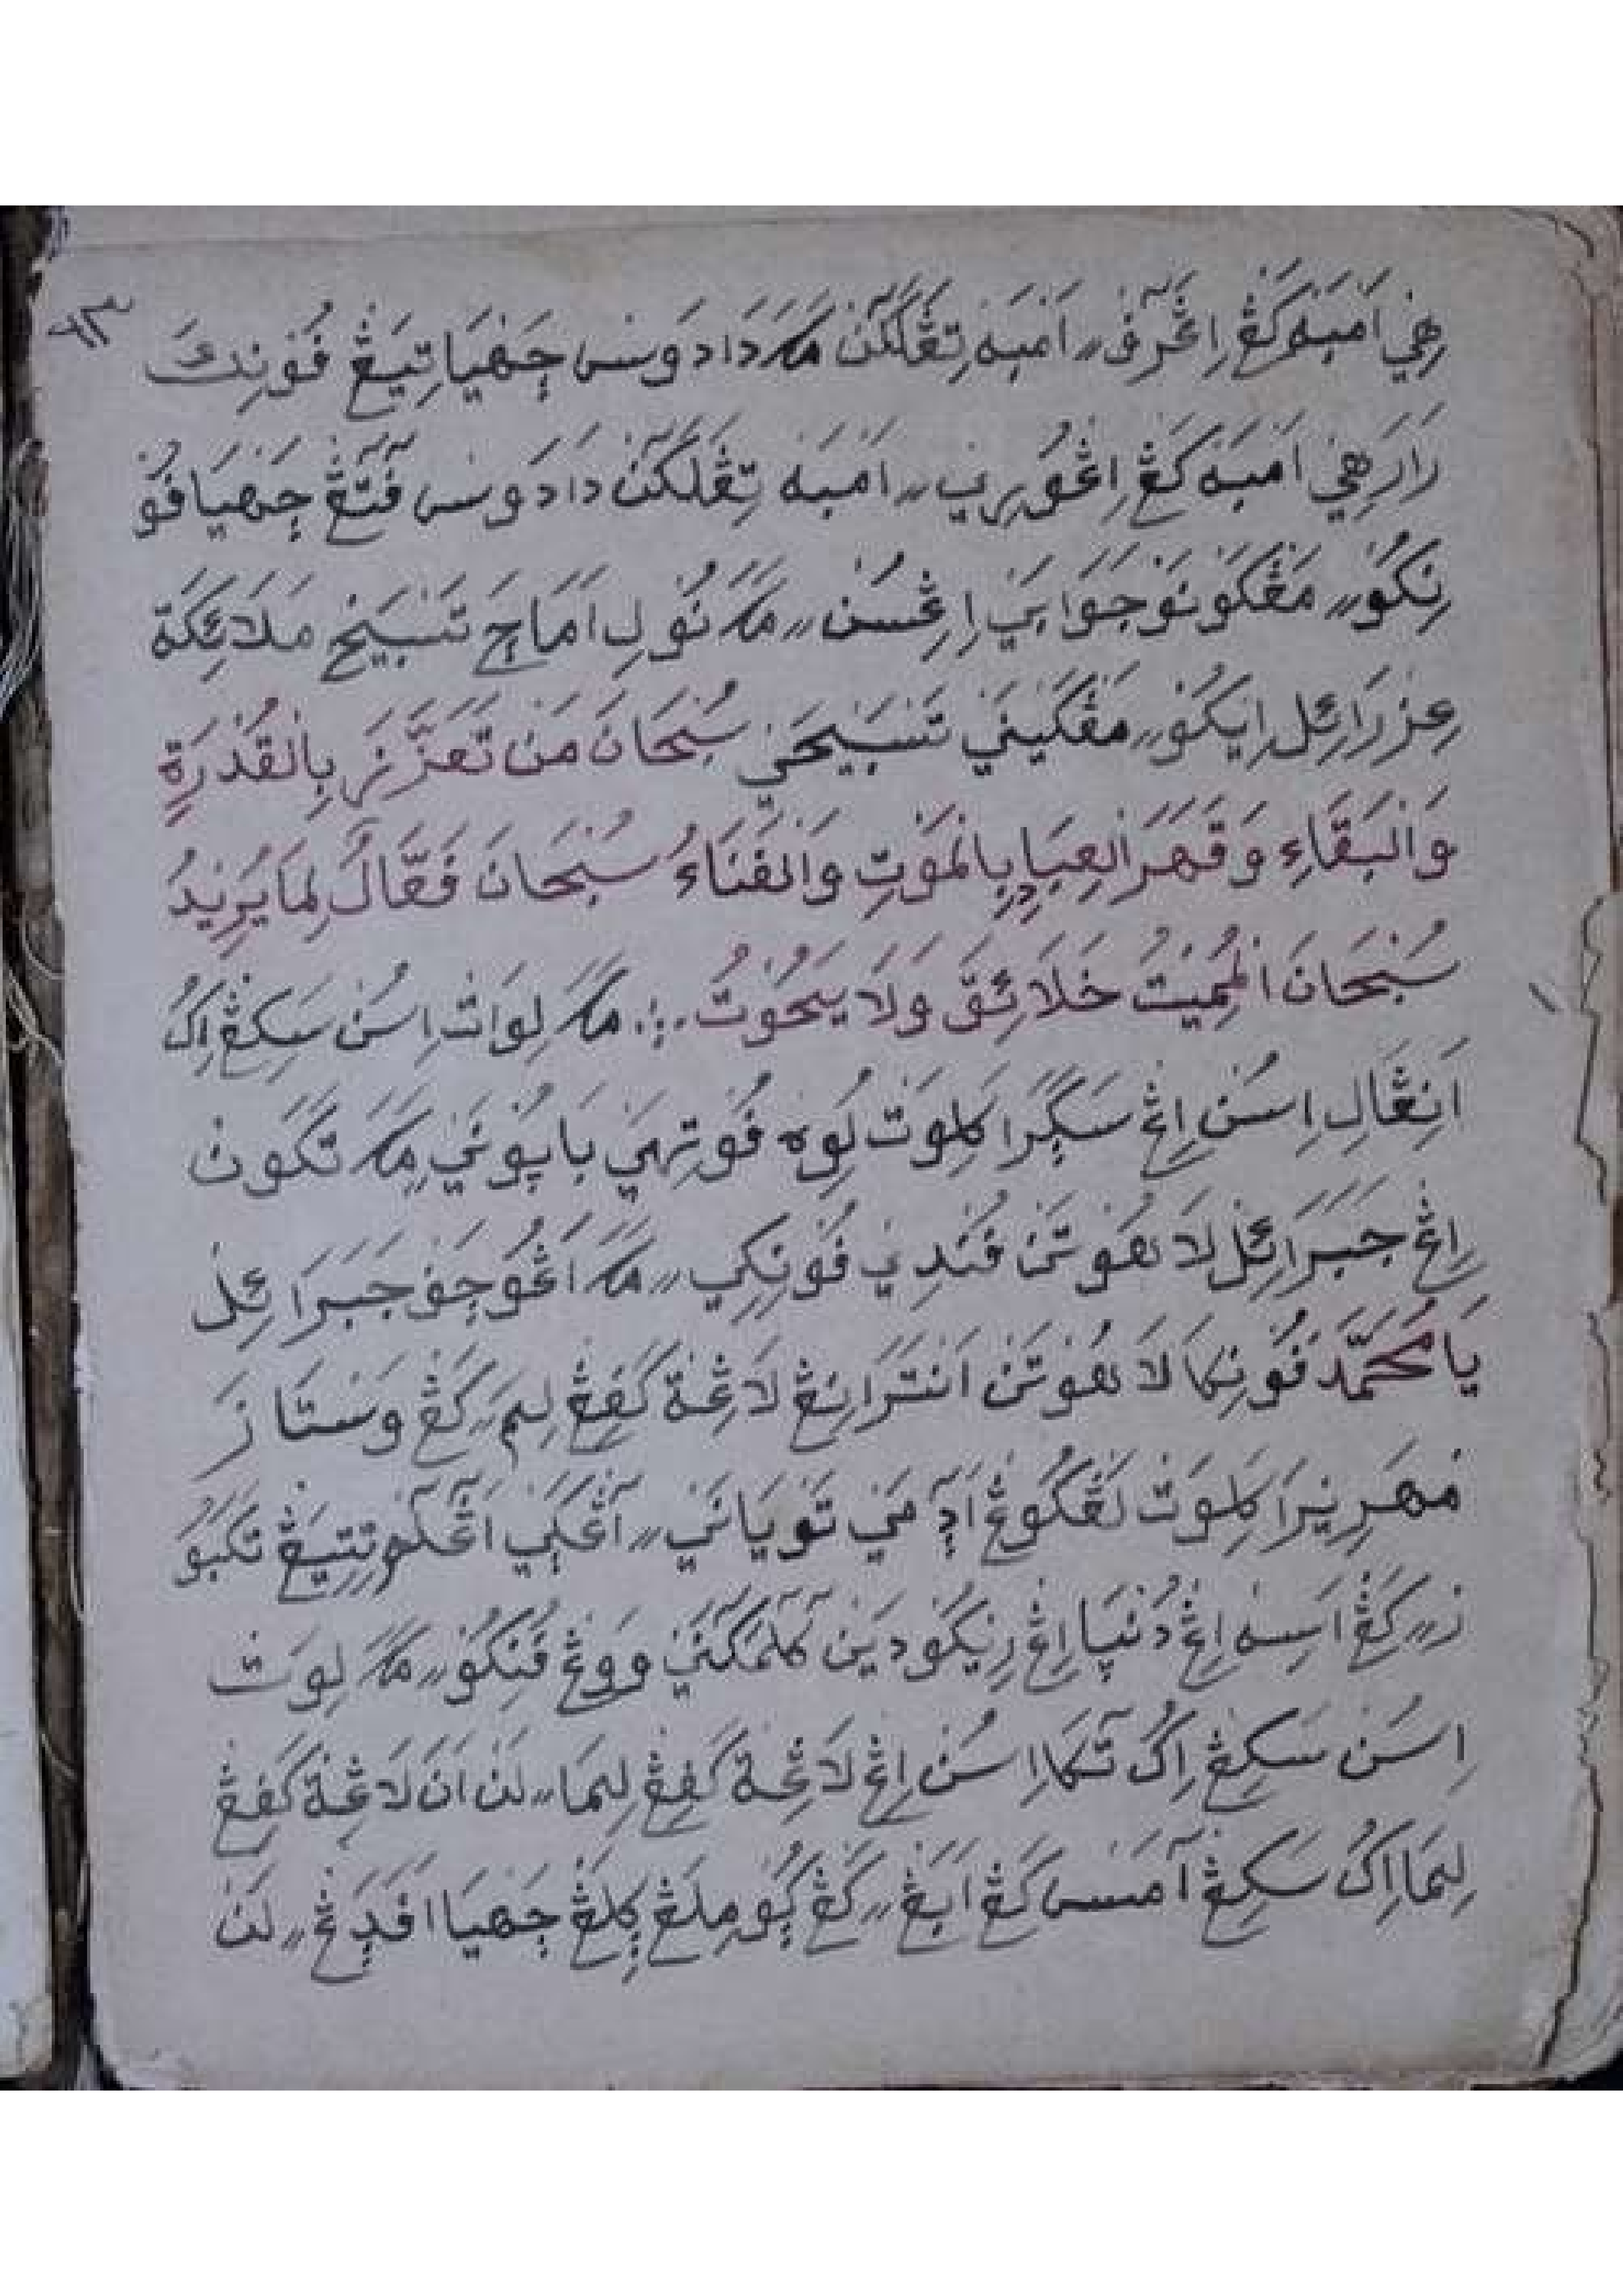 ٦٣
هِيْ اَمْبَهْ كَڠْ اِڠْرٓڤْ〃 اَمْبَهْ تِڠْلَكٓنْ مَكَ دَادَوْسْ چَهْيَا تِيَڠْ ڤُوْنِكَ
رَارَهِيْ اَمْبَهْ كَڠْ اِڠْوُرِيْ〃 اَمْبَهْ تِڠْلَكٓنْ دَادَوْسْ ڤٓتٓڠْ چَهْيَا ڤُوْ
نِكُوْ〃 مَڠْكَوْنَوْ جَوَابَيْ اِڠْسُنْ〃 مَكَ نُوْلِ اَمَاچَ تَسْبَيْحْ مَلَائِكَةْ
عِزْرَائِلْ اِيْكُوْ〃 مَڠْكَيْنَيْ تَسْبَيْحَيْ سُبْحَانَ مَنْ تَعَزَّزَ بِالْقُدْرَةِ
وَالْبَقَاءِ وَقَهَرَ الْعِبَادِ بِالْمَوْتِ وَالْفَنَاءُ سُبْحَانَ فَعَّالٌ لِمَا يُرِيْدُ
سُبْحَانَ الْمُمِيْتُ خَلَائِقَ وَلَا يَمُوْتُ ؞ مَكَ لِوَاتْ اِسُنْ سَكِڠْ اِكُ
اَنِڠَالِ اِسُنْ اِڠْ سَݢَرَا كِلِوَتْ لُوِهْ ڤُوْتِهَيْ بَاپُوْنَيْ مَكَ تَكَوْنْ
اِڠْ جَبَرَائِلْ لَاهُوْتَنْ ڤُنْدِيْ ڤُوْنِكِيْ〃 مَكَ اَڠُوْچَڤْ جَبَرَائِلْ
يَا مُحَمَّدْ ڤُوْنِكَا لَاهُوْتَنْ اَنْتَرَانِڠْ لَاڠِةْ كَڤِڠْ لِمَ〃 كَڠْ وَسْتَا زَ
مْهَرِيْرَا كِلِوَتْ لَڠْكُوْڠْ اَدٓمَيْ تَوْيَانَيْ〃 اٰڠْكَيْ اٰڠْلَمْ تِتِيَڠْ تَكَبُوْ
رْ〃 كَڠْ اَسِهْ اِڠْ دُنْيَا اِڠْ رِيْكُوْ دَيْنْ كٓلٓمَكٓنَيْ وَوَڠْ ڤُنِكُوْ〃 مَكَ لِوَتْ
اِسُنْ سَكِڠْ اِكُ تٓكَا اِسُنْ اِڠْ لَاڠِةْ كَڤِڠْ لِيْمَا〃 لَنْ اَنَ لَاڠِةْ كَڤِڠْ
لِيْمَا اِكُ سَكِڠْ اٰمَسْ كَڠْ اَبَڠْ〃 كَڠْ ݢُوْمِلَڠْ ݢِلَڠْ چَهْيَا اَڤَدَڠْ〃 لَنْ